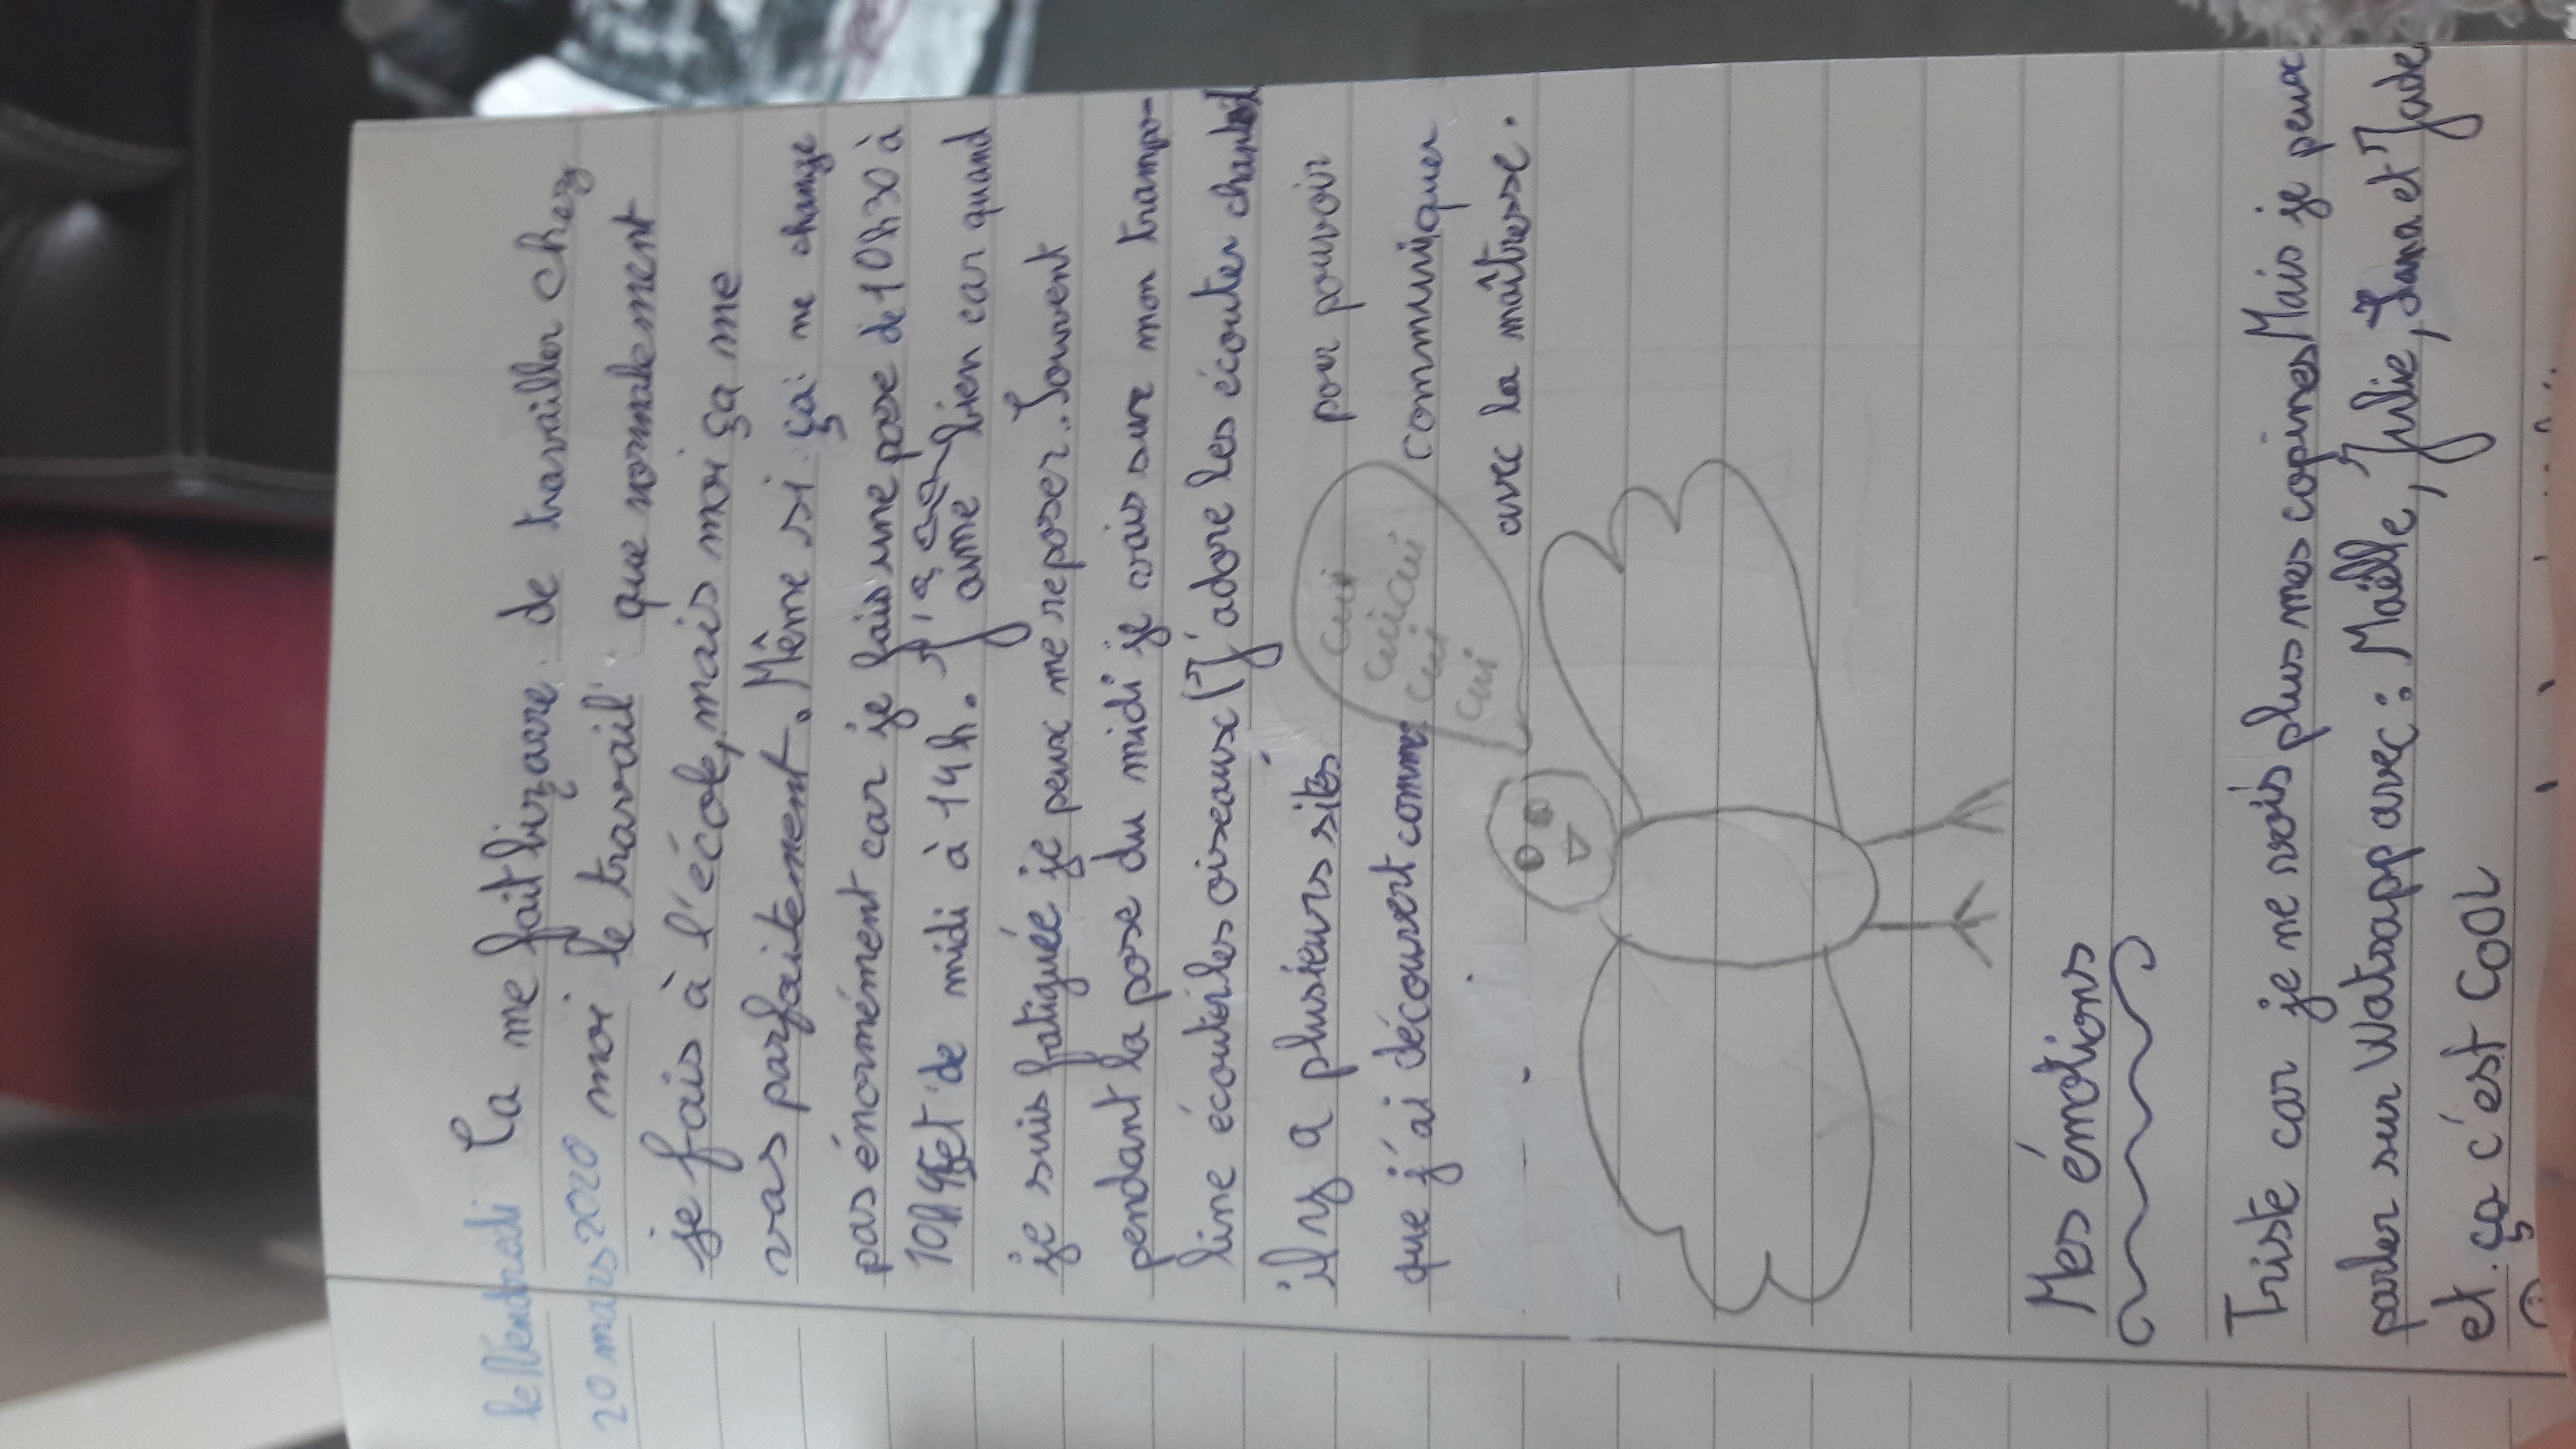 le Vendredi Ça me fait bizarre de travailler chez
20 mars 2020 moi le travail que normalement
je fais à l'école, mais moi ça me
vas parfaitement. Même si ça me change
pas énormément car je fais une pose de 10h30 à
10h45 et de midi à 14h. J'
aime bien car quand
je suis fatiguée je peux me reposer. Souvent
pendant la pose du midi je vais sur mon trampo-
line écouter les oiseaux (J'adore les écouter chanter
il y a plusieurs sites pour pouvoir
que j'ai découvert comme communiquer
avec la maîtresse.
cui
cuicui
cui
cui
Mes émotions
Triste car je ne vois plus mes copines Mais je peux
parler sur Watsapp avec : Maëlle, Julie, Sana et Jade
et ça c'est COOL